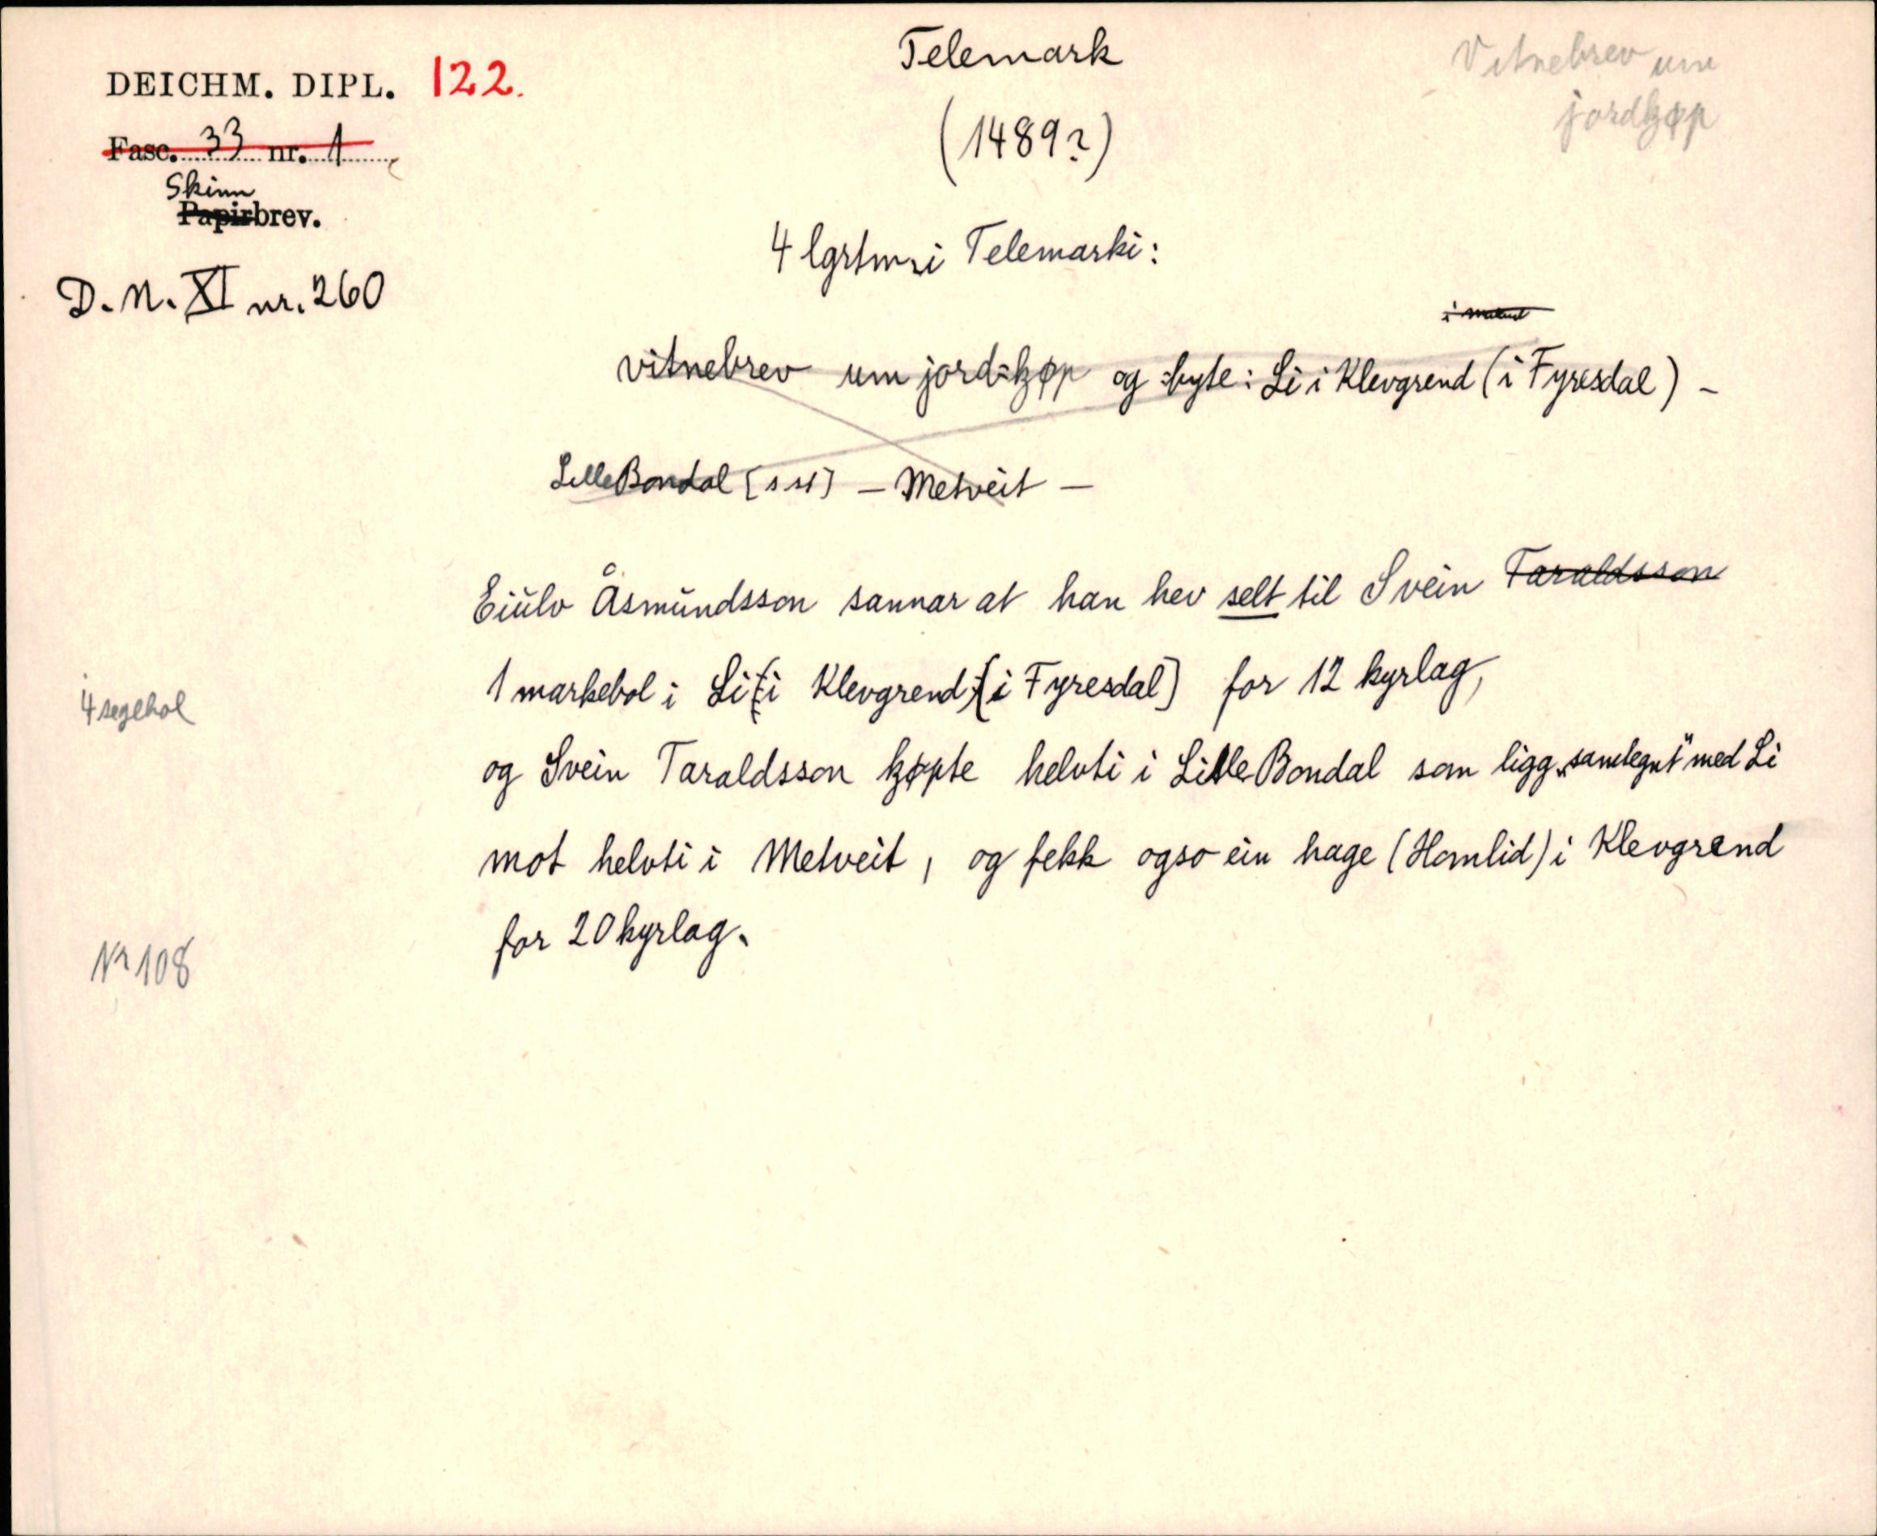 DEICHM. DIPL. 122.
Fasc. 33 nr. 1
Skinn
Papirbrev.
D. N. XI nr. 260
Telemark
(1489?)
Vitnebrev um
jordkjøp
4 lgrtm. i Telemarki:
vitnebrev um jord-kjøp og -byte: Li i Klevgrend (i Fyresdal) –
Lille Bondal [sst] – Metveit –
Eiulv Åsmundsson sannar at han hev selt til Svein Taraldsson
1 markebol i Li (i Klevgrend) [i Fyresdal] for 12 kyrlag,
og Svein Taraldsson kjøpte helvti i Lille Bondal som ligg „samlegnt" med Li
mot helvti i Metveit, og fekk ogso ein hage (Homlid) i Klevgrend
for 20 kyrlag.
4 segl hol
Nr 108